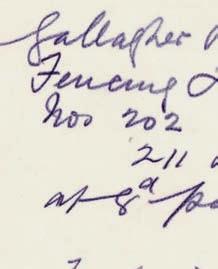 Gallagher
Fencing
Nos 202
211
at 8d